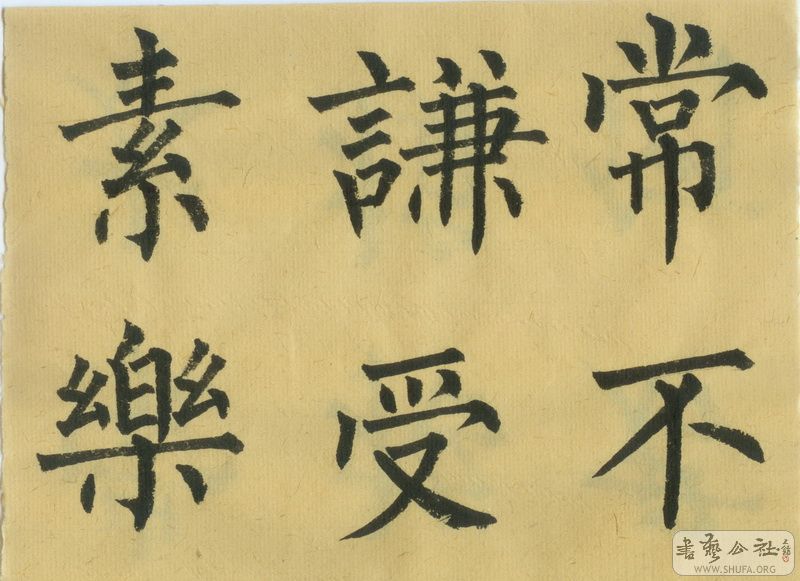 常不
謙受
素樂
書藝公社
WWW.SHUFA.ORG